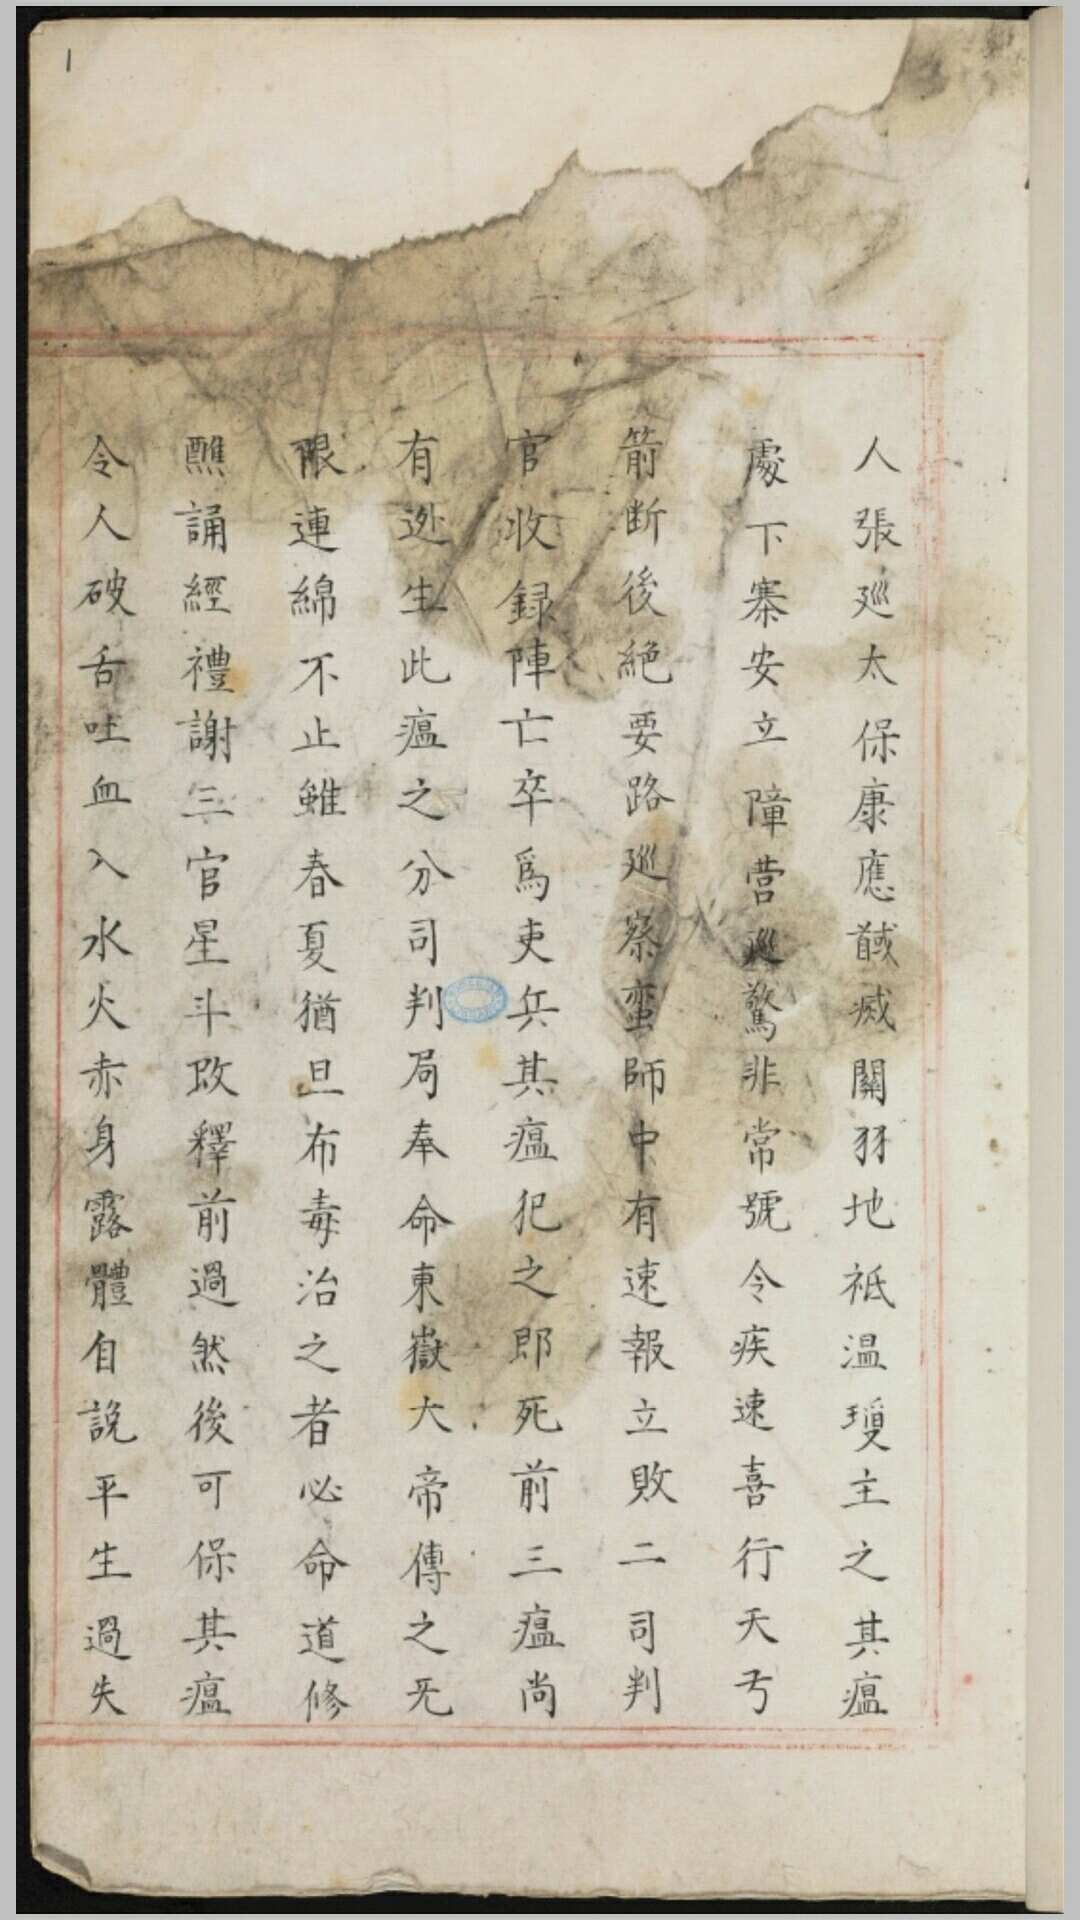 1
人張巡太保康應馘烕關羽地祗温瓊主之其瘟
處下寨安立障营巡驚非常號令疾速喜行天丂
箭断後絕要路巡察蛮師中有速報立敗二司判
官收録陣亡卒爲吏兵其瘟犯之即死前三瘟尚
有迯生此瘟之分司判局奉命東嶽大帝傳之无
限連綿不止雖春夏猶旦布毒治之者必命道修
醮誦經禮謝三官星斗改釋前過然後可保其瘟
令人破舌吐血入水火赤身露體自説平生過失